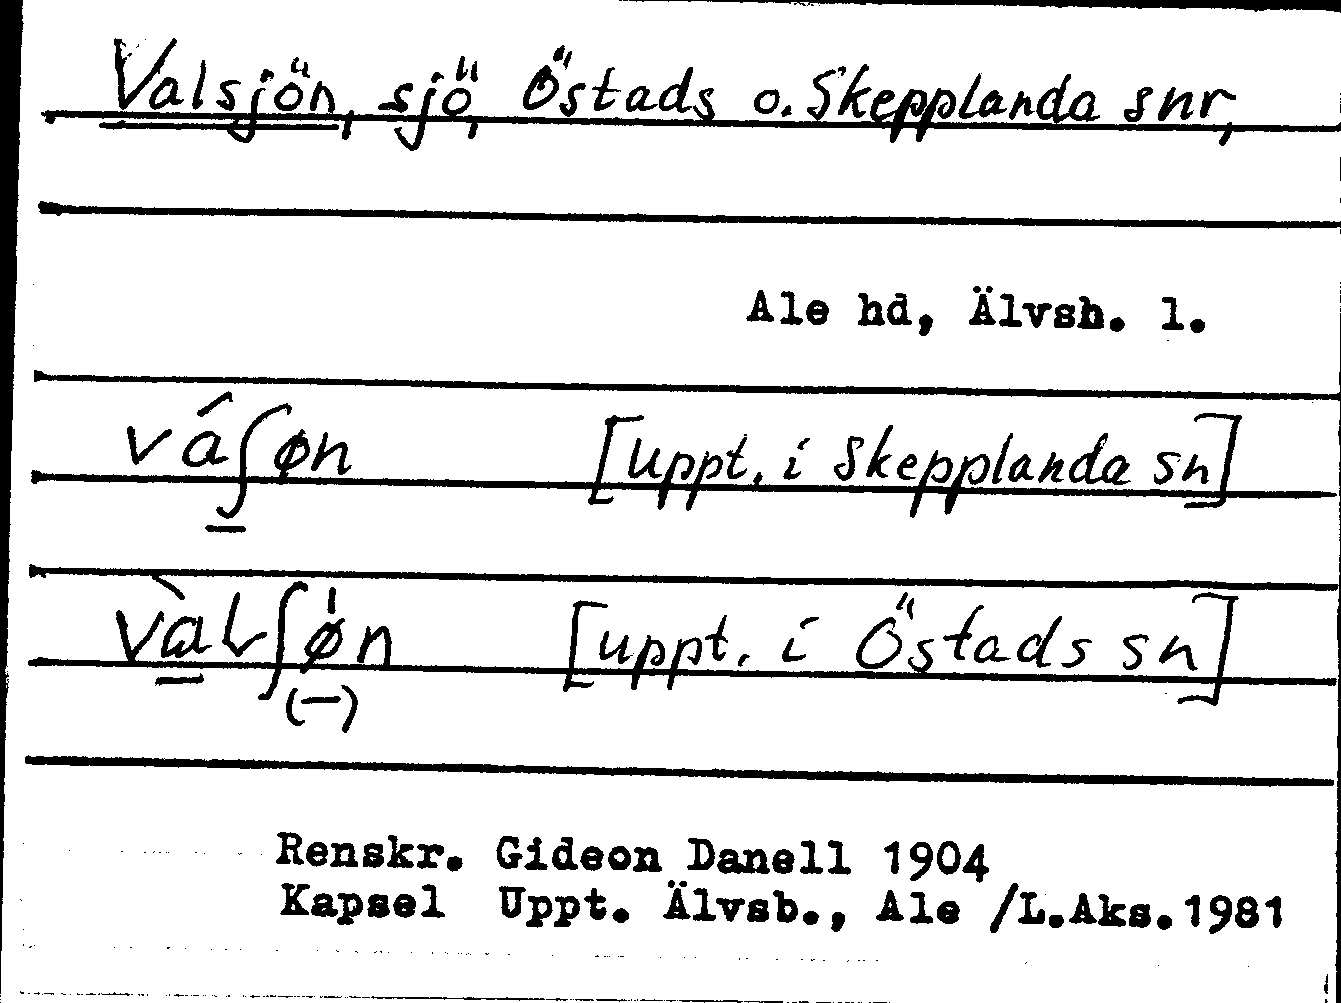 Valsjön, sjö, Östads o. Skepplanda snr,
Ale hd, Älvsb. l.
vá∫øn [uppt. i Skepplanda sn]
vàl∫øn [uppt. i Östads sn]
(–)
Renskr. Gideon Danell 1904
Kapsel Uppt. Älvsb., Ale /L.Aks.1981